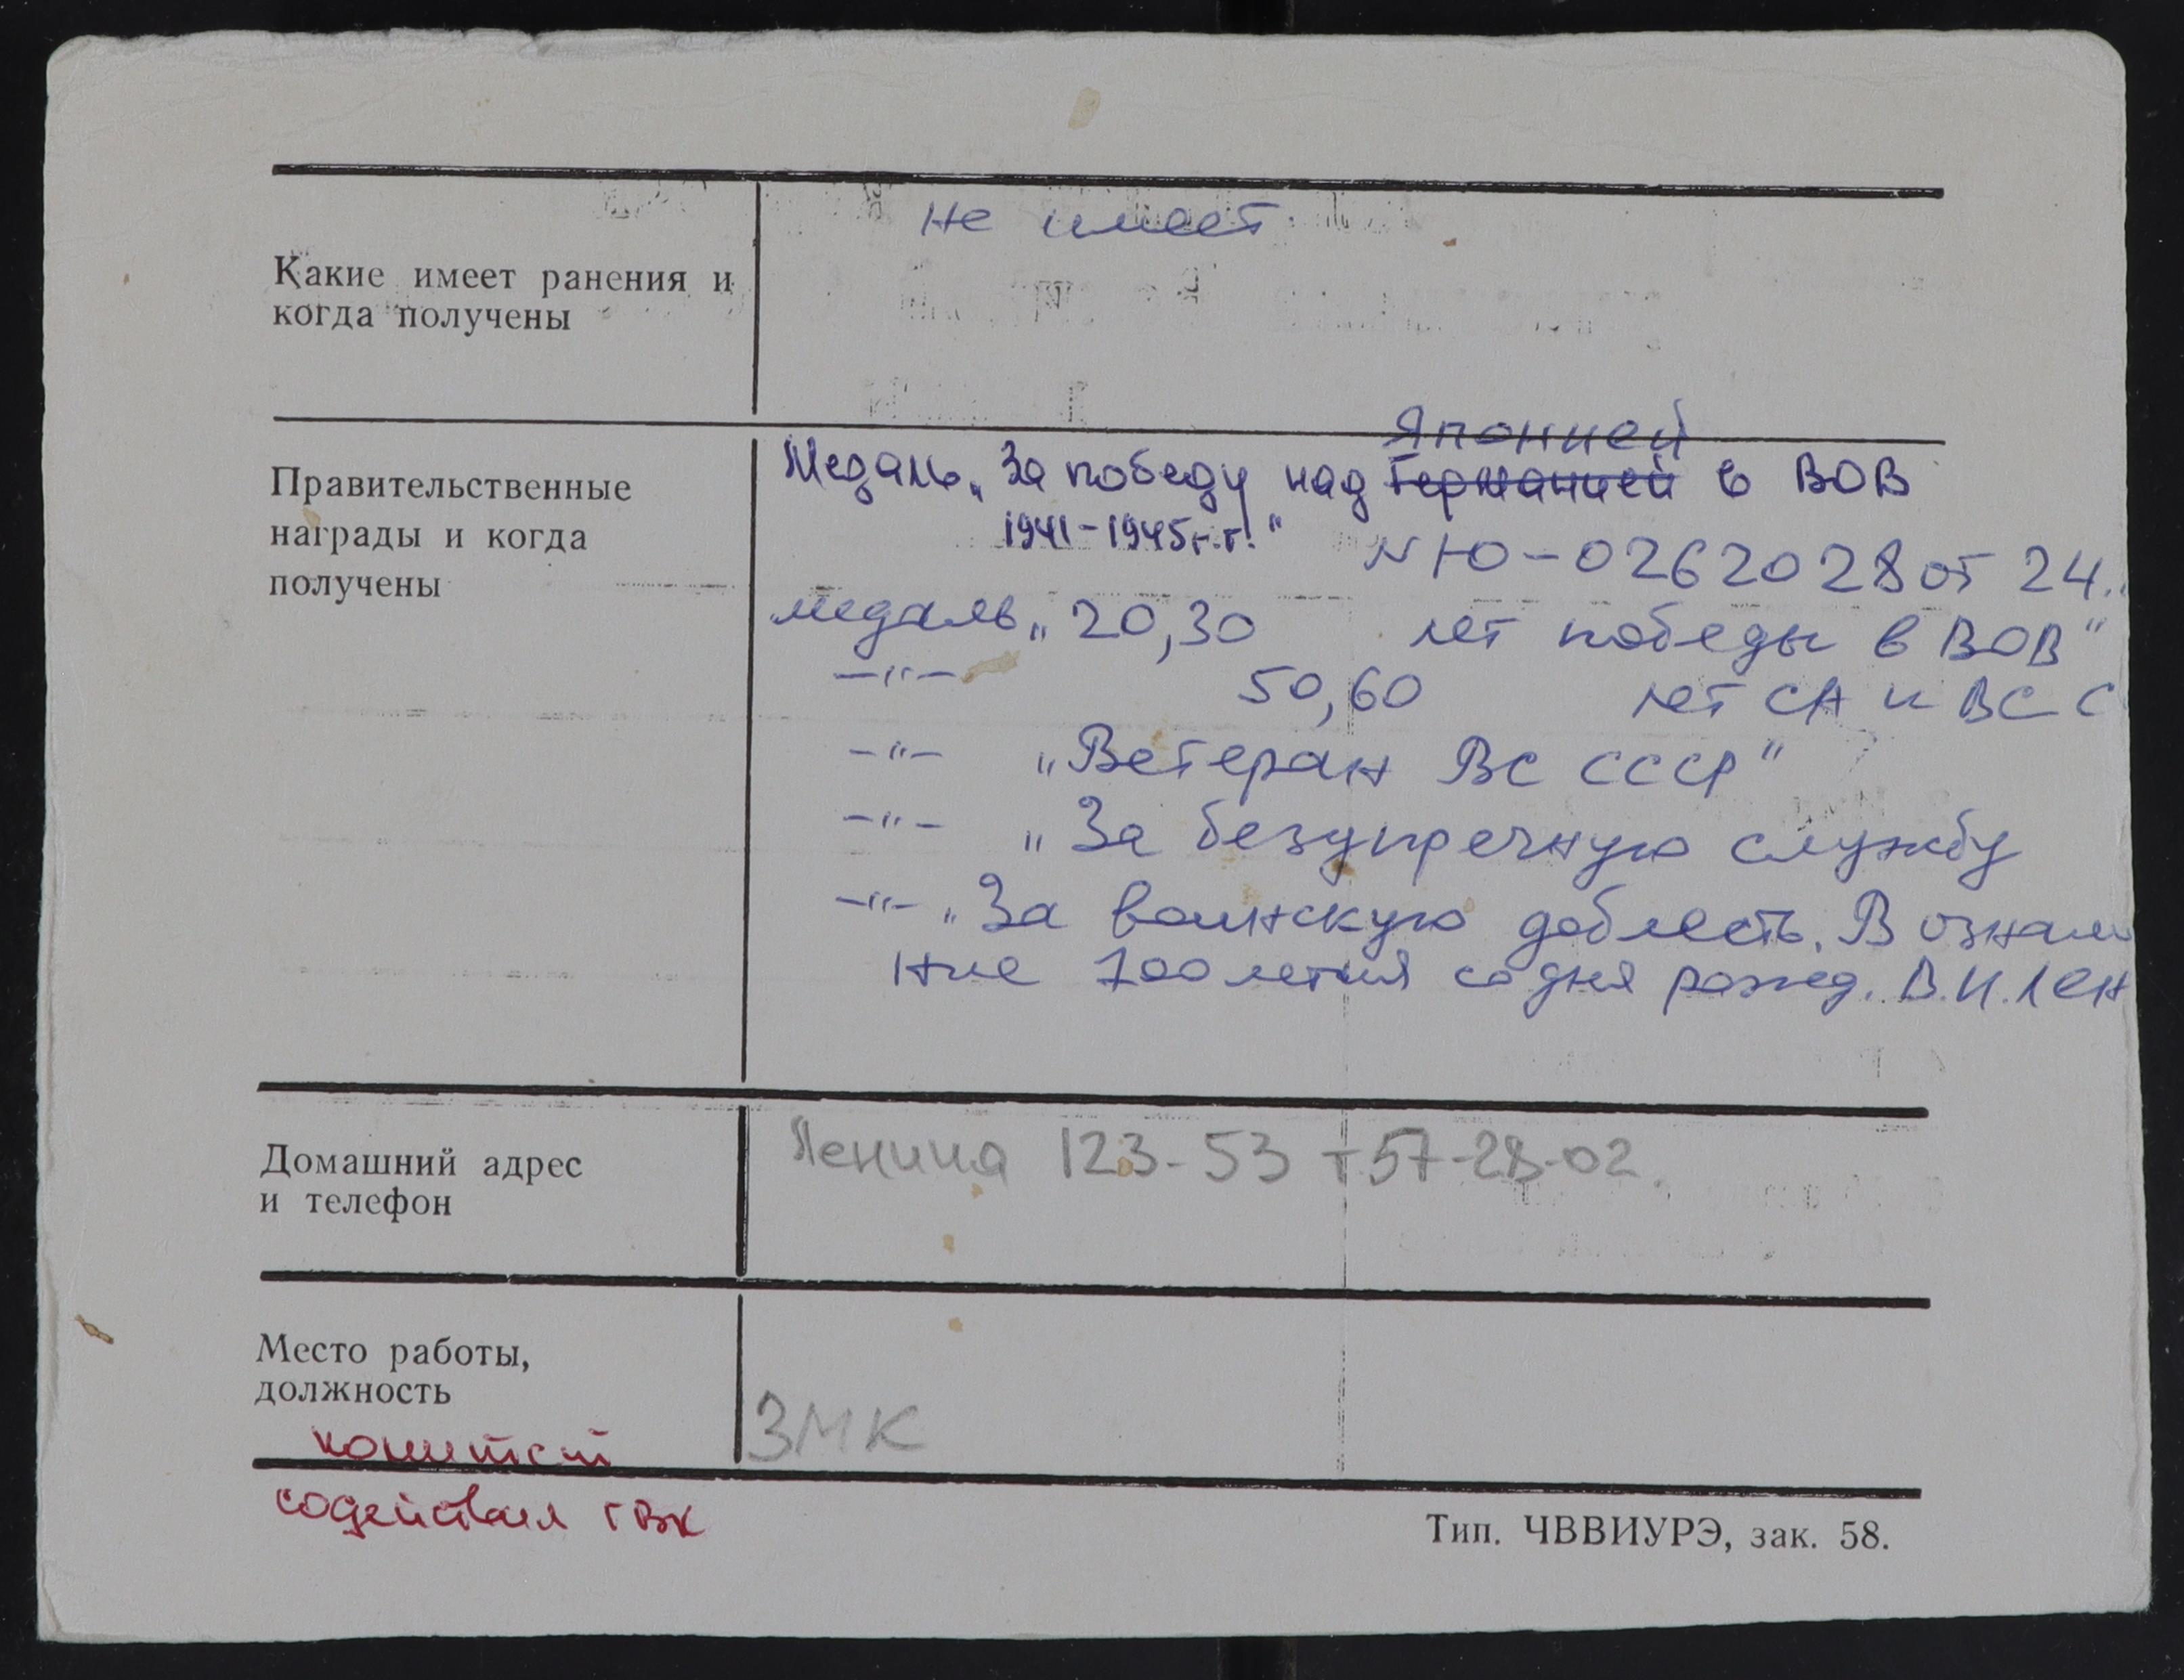 не имеет
Какие имеет ранения и
когда получены
Японией
Правительственные
награды и когда
получены
Медаль „За победу над Германией в ВОВ
1941-1945г.г."
№ Ю-0262028 от 24.
медаль „20,30 лет победы в ВОВ"
-"- 50,60 лет СА и ВС С
-"- „Ветеран ВС СССР"
-"- „За безупречную службу
-"- „За воинскую доблесть. В ознам
ние 100 летия со дня рожд. В.И.Лен
Домашний адрес
и телефон
Ленина 123-53 т 57-28-02.
Место работы,
должность
ЗМК
комитет
содействия ГВК
Тип. ЧВВИУРЭ, зак. 58.